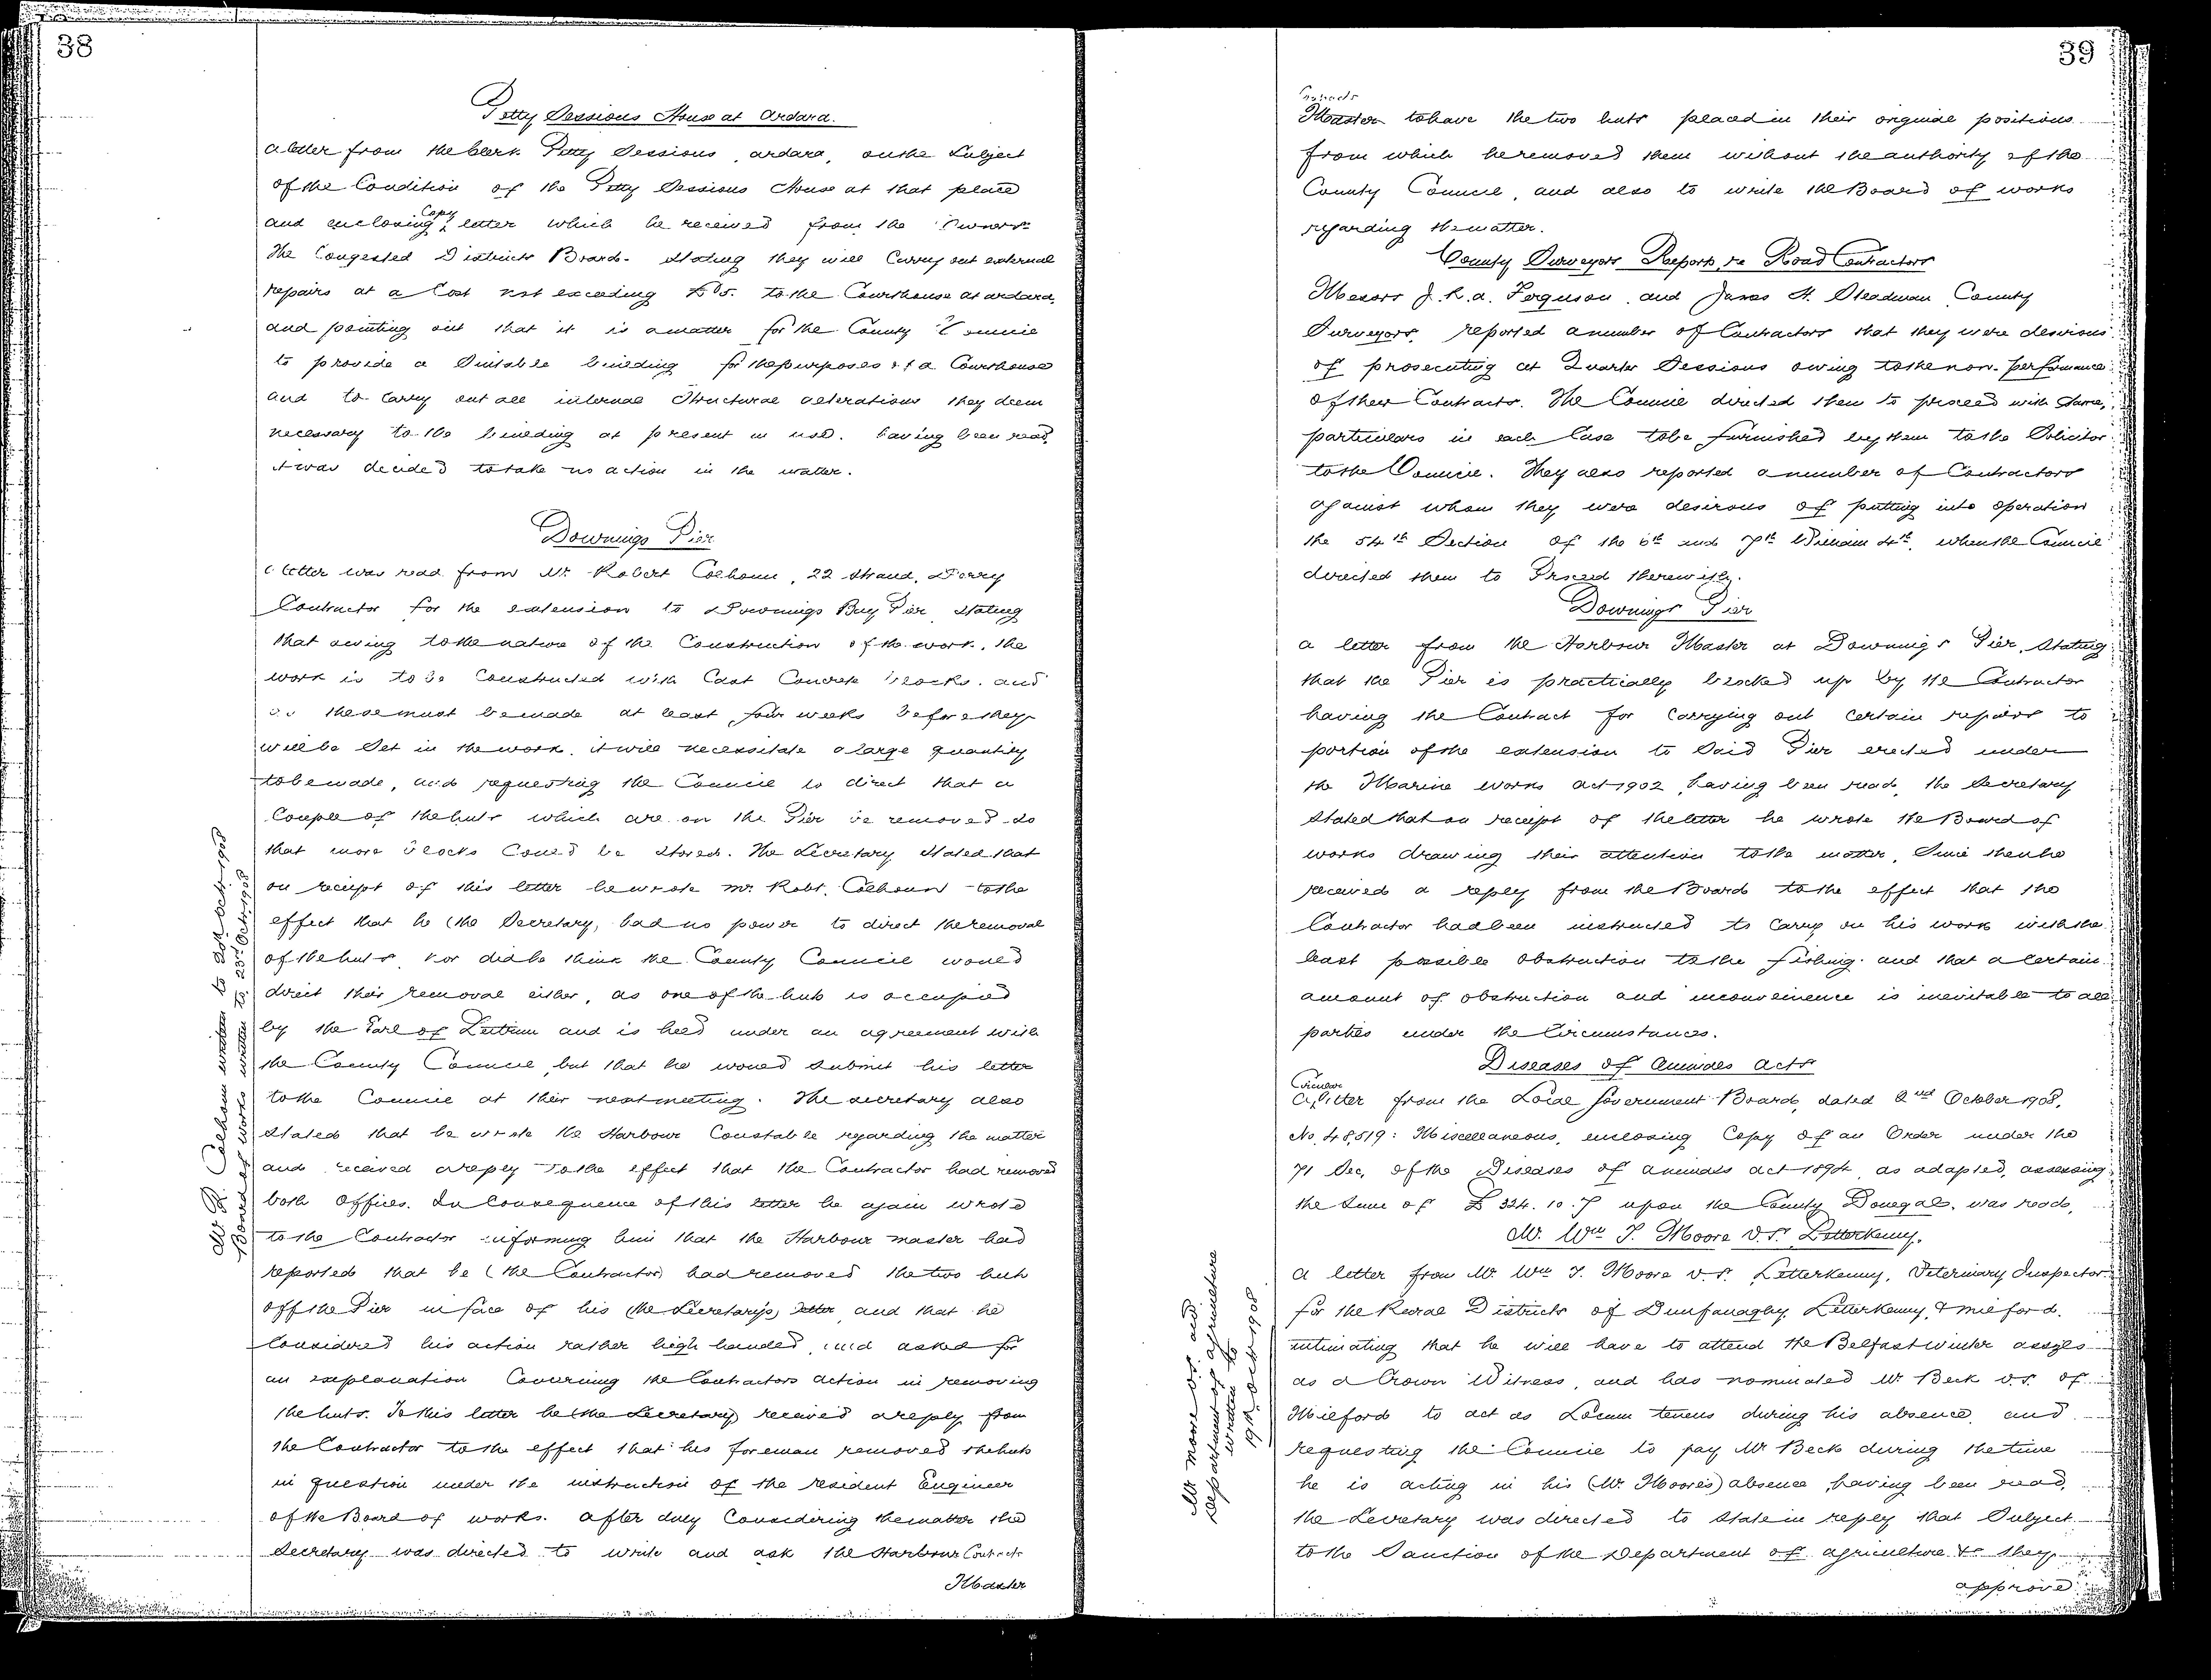 38
Petty Sessions House at Ardara.
A letter from the Clerk Petty Sessions, Ardara, on the Subject
of the Condition of the Petty Sessions House at that place
and enclosing Copy letter which he received from the Owners
The Congested Districts Board. Stating they will Carry out external
repairs at a Cost not exceeding to the Courthouse at Ardara,
and pointing out that it is a matter for the County Council
to provide a Suitable building for the purposes of a Courthouse
and to Carry out all internal Structural alterations they deem
necessary to the building at present in use. having been read,
it was decided to take no action in the matter.
Downings Pier
A letter was read from Mr. Robert Colhoun, 22 Strand, Derry
Contractor for the extension to Downings Bay Pier Stating
that owing to the nature of the Construction of the work, the
work is to be Constructed with Cast Concrete blocks. and
as these must be made at least four weeks before they
will be Set in the work, it will necessitate a large quantity
to be made, and requesting the Council to direct that a
Couple of the huts which are on the Pier be removed so
that more blocks Could be Stored. The Secretary Stated that
on receipt of this letter he wrote Mr. Robt. Colhoun to the
effect that he (the Secretary) had no power to direct the removal
of the huts, nor did he think the County Council would
direct their removal either, as one of the huts is occupied
by the Earl of Leitrim and is held under an agreement with
the County Council, but that he would Submit his letter
to the Council at their next meeting. The Secretary also
Stated that he wrote the Harbour Constable regarding the matter
and received a reply to the effect that the Contractor had removed
both Offices. In Consequence of this letter he again wrote
to the Contractor informing him that the Harbour Master had
reported that he (the Contractor) had removed the two huts
off the Pier in face of his (the Secretary's) letter and that he
Considered his action rather high handed, and asked for
an explanation Covering the Contractors action in removing
the huts. To this letter he (the Secretary) received a reply from
the Contractor to the effect that his foreman removed the huts
in question under the instruction of the resident Engineer
of the Board of Works. After duly Considering the matter the
Secretary was directed to write and ask the Harbour Contracts
Master
Mr R Colhoun written to Oct 1908
Board of Works written to 23rd Oct. 1908
39
Contracts
Master to have the two huts placed in their original positions
from which he removed them without the authority of the
County Council, and also to write the Board of Works
regarding the matter.
County Surveyors Reports re Road Contractors
Messrs J. R. A. Ferguson and James H. Steadman County
Surveyors, reported a number of Contractors that they were desirous
of prosecuting at Quarter Sessions owing to the non-performance
of their Contracts. The Council directed them to proceed with Same,
particulars in each Case to be furnished by them to the Solicitor
to the Council. They also reported a number of Contractors
against whom they were desirous of putting into operation
the 54th Section of the 6th and 7th William 4th, when the Council
directed them to Proceed therewith.
Downings Pier
A letter from the Harbour Master at Downings Pier, Stating
that the Pier is practically blocked up by the Contractor
having the Contract for Carrying out Certain repairs to
portion of the extension to Said Pier erected under
the Marine Works Act 1902, having been read, the Secretary
Stated that on receipt of the letter he wrote the Board of
Works drawing their attention to the matter, Since then he
received a reply from the Board to the effect that the
Contractor had been instructed to Carry on his work with the
least possible obstruction to the fishing and that a Certain
amount of obstruction and inconvenience is inevitable to all
parties under the Circumstances.
Diseases of Animals Acts
A Circular letter from the Local Government Board, dated 2nd October 1908,
No. 48,519: Miscellaneous, enclosing Copy of an Order under the
71 Sec, of the Diseases of Animals Act 1894 as adapted, assessing
the Sum of £324. 10. 7 upon the County Donegal, was read.
Mr. Wm J. Moore V.S. Letterkenny.
A letter from Mr. Wm J. Moore V.S. Letterkenny, Veterinary Inspector
for the Rural Districts of Dunfanaghy, Letterkenny, & Milford.
intimating that he will have to attend the Belfast Winter assizes
as a Crown Witness, and has nominated Mr Beck V.S. of
Milford to act as Locum tenens during his absence, and
requesting the Council to pay Mr Beck during the time
he is acting in his (Mr. Moore's) absence, having been read,
the Secretary was directed to State in reply that Subject
to the Sanction of the Department of Agriculture &c they
approve
Mr Moore V.S. and
Department of Agriculture
written to
19th Oct 1908